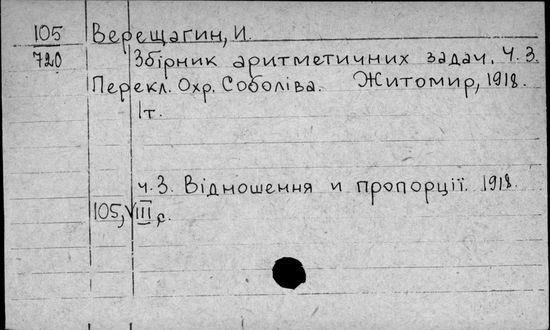 105 Верещагин, И.
720 Збірник аритметичних задач. Ч. 3.
Перекл. Охр. Соболіва. Житомир, 1918.
1т.
ч. 3. Відношення и пропорції. 1918.
105, VIII с.